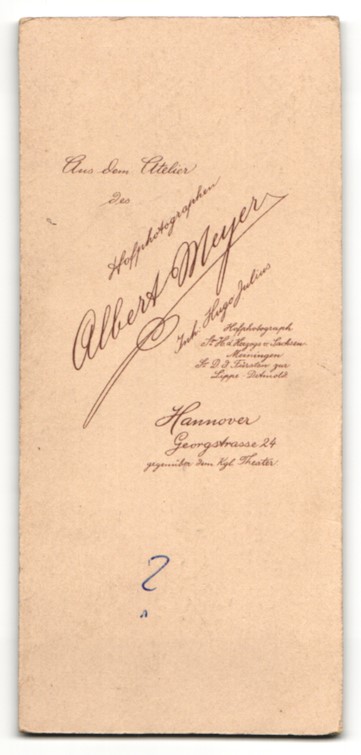 Aus dem Atelier
des
Hofphotographen
Albert Meyer
Inh. Hugo Julius
Hofphotograph
Sr. H. d. Herzogs v. Sachsen
Meiningen
Sr. D. d. Fürsten zur
Lippe-Detmold.
Hannover
Georgstrasse 24
gegenüber dem Kgl. Theater
?